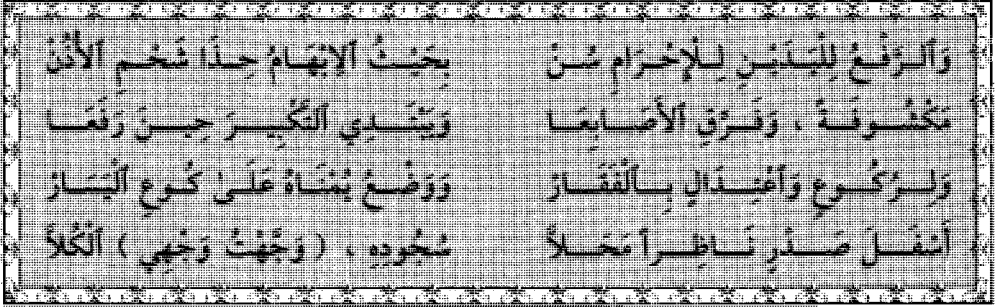 وَٱلرَّفْعُ لِلْيَدَيْنِ لِلْإِحْرَامِ سُنّْ بِحَيْثُ ٱلإِبْهَامُ حِذَا شَحْمِ ٱلأُذُنْ
مَكْشُوفَةً ، وَفَرِّقِ ٱلأَصَابِعَا وَيَبْتَدِي ٱلتَّكْبِيرَ حِينَ رَفَعَا
وَلِرُكُوعٍ وَٱعْتِدَالٍ بِٱلْفَقَارْ وَوَضْعُ يُمْنَاهُ عَلَىٰ كُوعِ ٱلْيَسَارْ
أَسْفَلَ صَدْرٍ نَاظِراً مَحَلاَّ سُجُودِهِ ، ( وَجَّهْتُ وَجْهِي ) ٱلْكُلاَّ